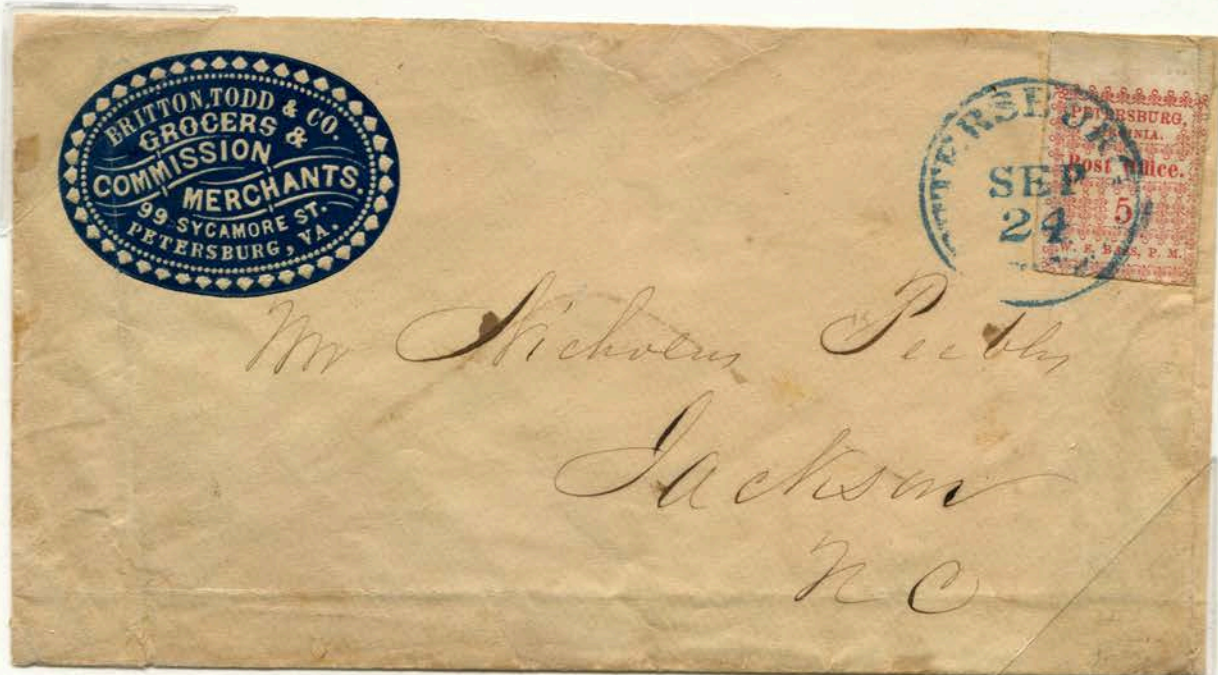 BRITTON, TODD & CO.
GROCERS &
COMMISSION
MERCHANTS.
99 SYCAMORE ST.
PETERSBURG, VA.
PETERSBURG
SEP
24
PETERSBURG,
VIRGINIA.
Post Office.
5
W. E. BASS, P. M.
Mr Nicholas Peebles
Jackson
N C